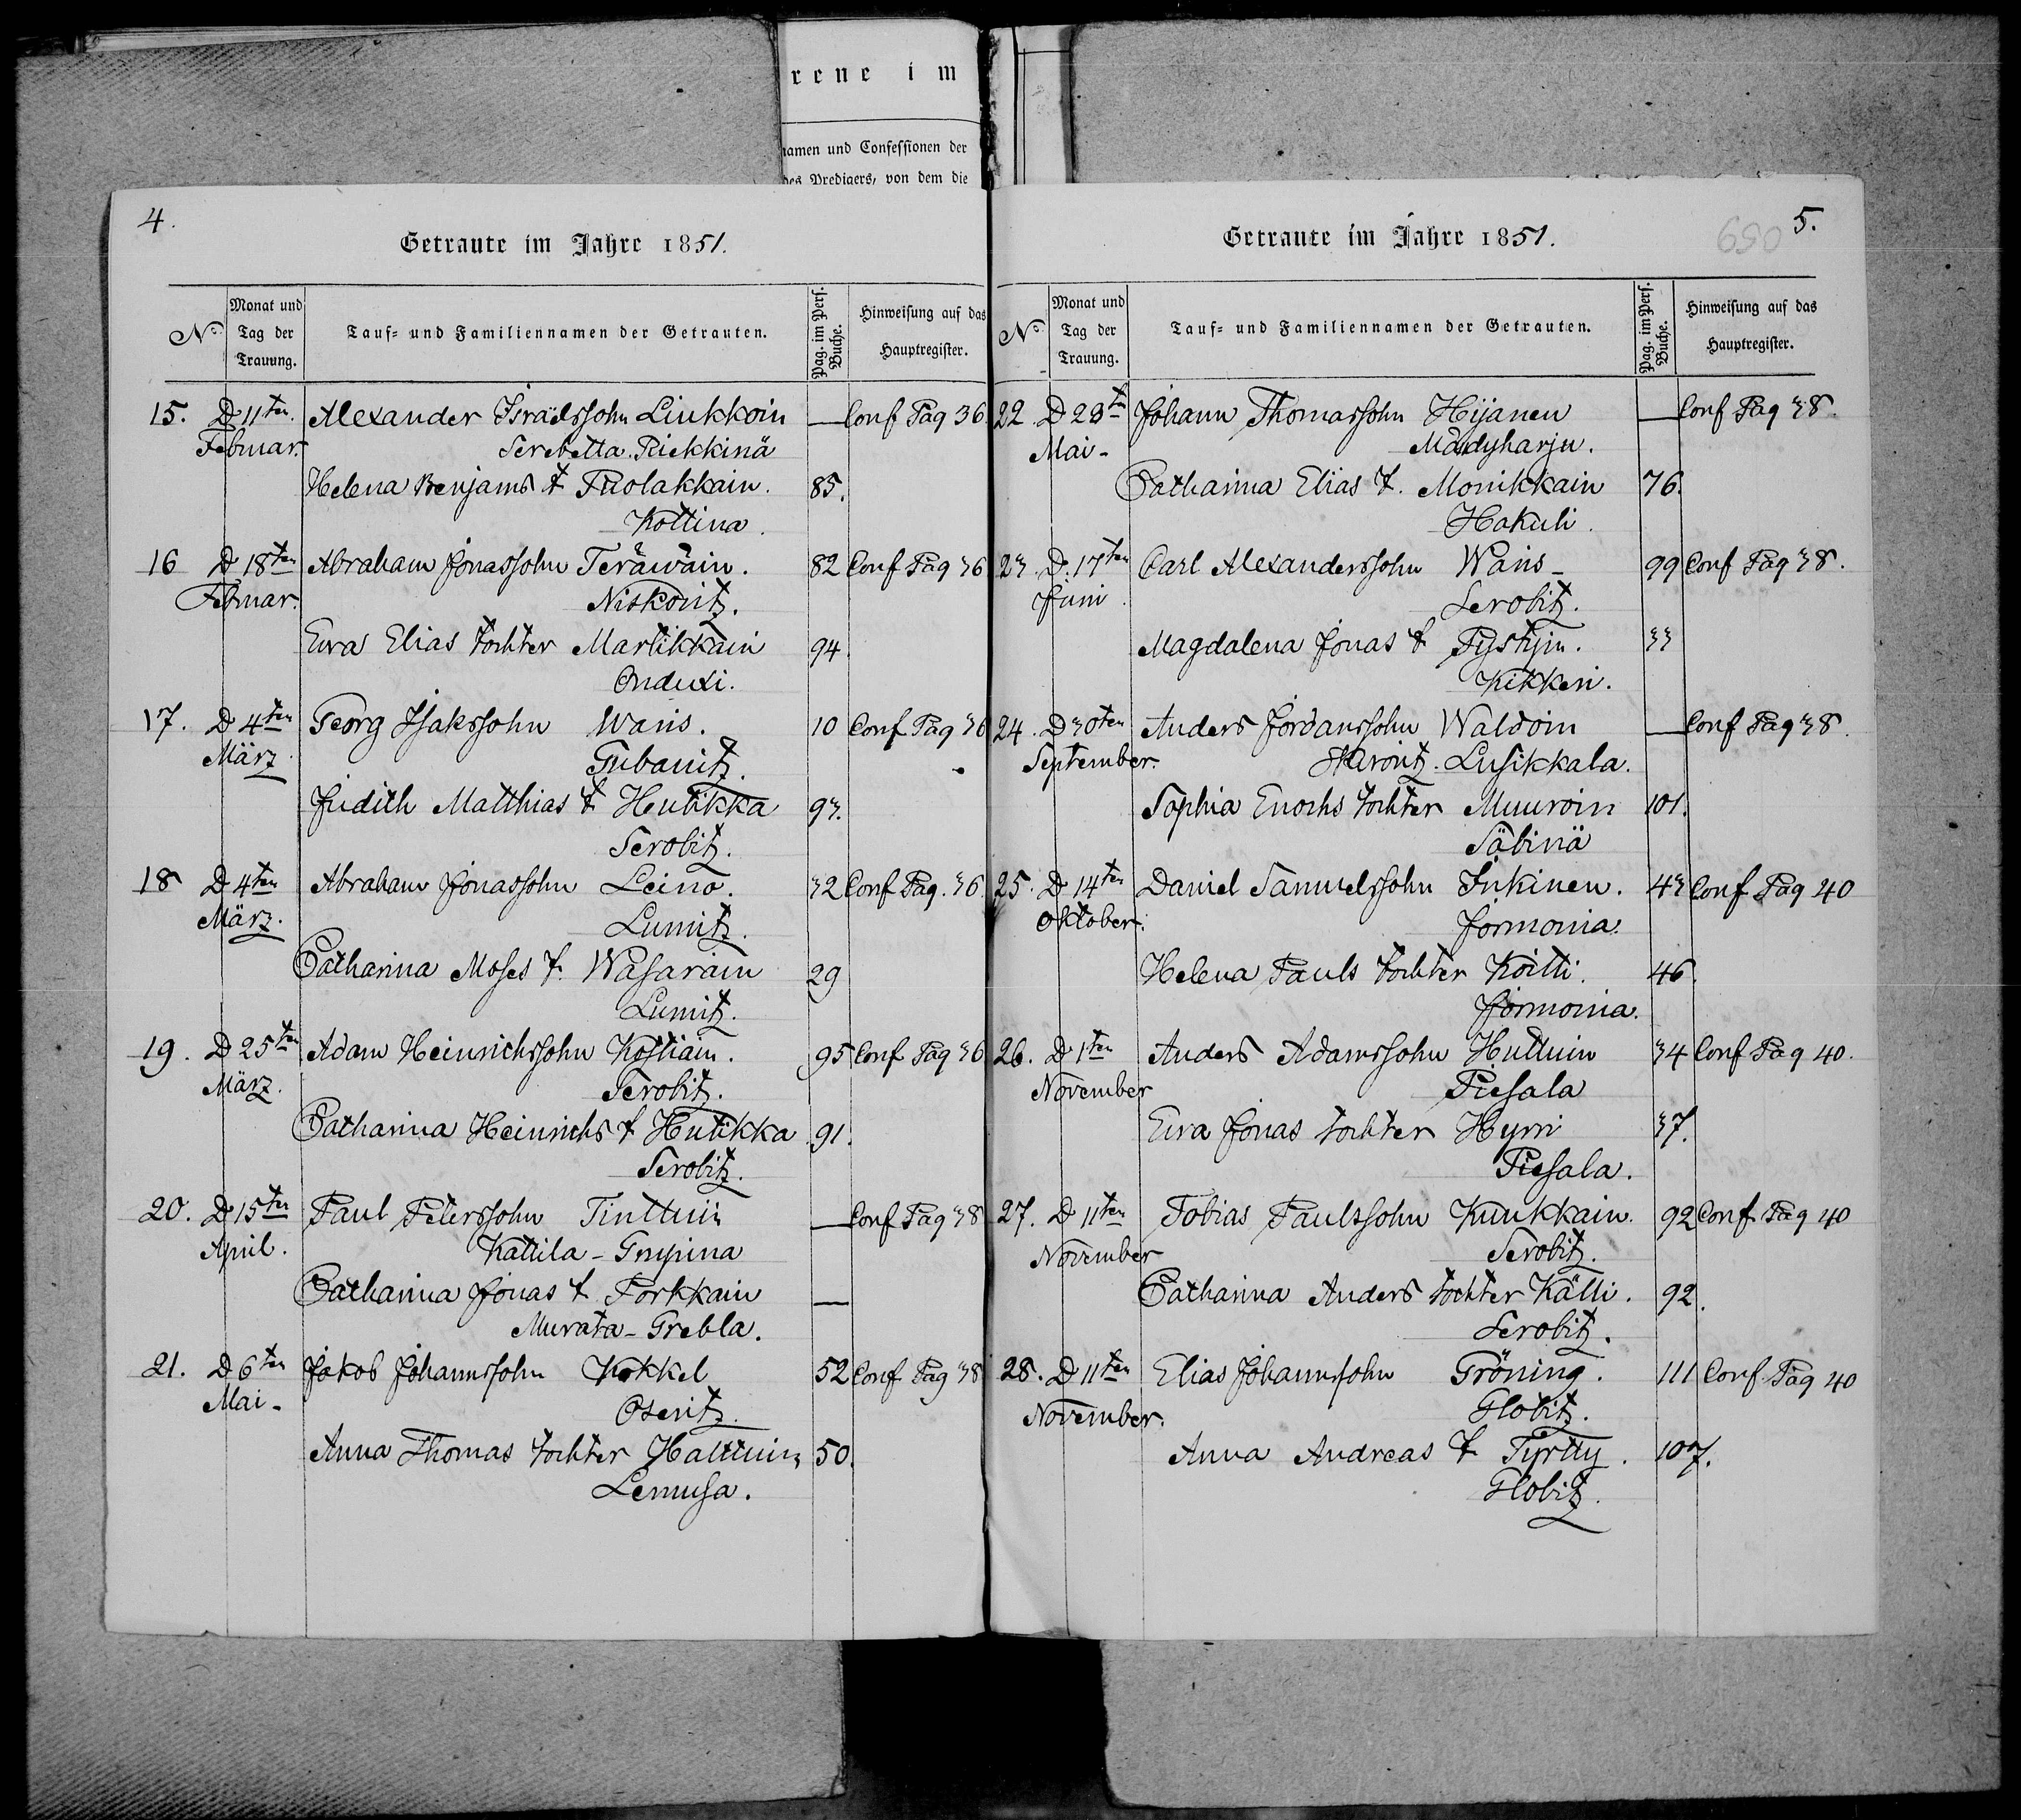 rene im
namen und Confessionen der
des Predigers, von dem die
4.
Getraute im Jahre 1851.
No. Monat und Tag der Trauung. Tauf- und Familiennamen der Getrauten. Pag. im Pers. Buche. Hinweisung auf das Hauptregister.
15. D 11ten Alexander Israëlssohn Liukkoin — Conf Pag 36.
Februar. Serebetta. Piekkinä
Helena Benjams t Puolakkain. 85.
Kottina.
16 D 18ten Abraham Jonassohn Teräwäin. 82 Conf Pag 36
Februar. Niskowitz.
Ewa Elias tochter Martikkain 94.
Onduxi.
17. D 4ten Georg Isakssohn Waris. 10 Conf Pag 36
März. Gubanitz.
Judith Matthias t Hutikka 93.
Serobitz.
18 D 4ten Abraham Jonassohn Leino. 32 Conf Pag. 36.
März. Lumitz.
Catharina Moses t. Wasarain 29
Lumitz.
19. D 25ten Adam Heinrichssohn Kostiain. 95 Conf Pag 36
März. Serobitz.
Catharina Heinrichs t Hutikka 91.
Serobitz.
20. D 15ten Paul Peterssohn Tinttuin — Conf Pag 38
April. Kattila - Grypina
Catharina Jonas t Porkkain —
Murata - Grebla.
21. D 6ten Jakob Johannssohn Kokkel 52 Conf Pag 38
Mai - Oseritz.
Anna Thomas tochter Halttuin 50.
Lemusa.
5.
650
Getraute im Jahre 1851.
No. Monat und Tag der Trauung. Tauf- und Familiennamen der Getrauten. Pag. im Pers. Buche. Hinweisung auf das Hauptregister.
22. D 23ten Johann Thomassohn Hijanen — Conf Pag 38.
Mai - Mändyharju.
Catharina Elias t. Monikkain 76.
Hakuli.
23. D. 17ten Carl Alexanderssohn Waris - 99 Conf Pag 38.
Juni. Serobitz.
Magdalena Jonas t Pystyin. 33
Kikkeri.
24. D 30ten Anders Jordanssohn Waldoin — Conf Pag 38.
September. Lusikkala.
Sophia Enochs tochter Muuroin 101.
Säbinä
25. D 14ten Daniel Samuelssohn Inkinen. 43 Conf Pag 40
Oktober. Jormonia.
Helena Pauls tochter Koitti. 46.
Jormonia.
26. D 1ten Anders Adamssohn Huttuin 34 Conf Pag 40.
November Piesala
Ewa Jonas tochter Hyrri 37.
Piesala.
27. D 11ten Tobias Paulssohn Kuukkain. 92 Conf Pag 40
November Serobitz.
Catharina Anders tochter Källi. 92.
Serobitz.
28. D 11ten Elias Johannssohn Gröning. 111 Conf Pag 40
November. Globitz.
Anna Andreas t Tyrtty. 107.
Globitz.